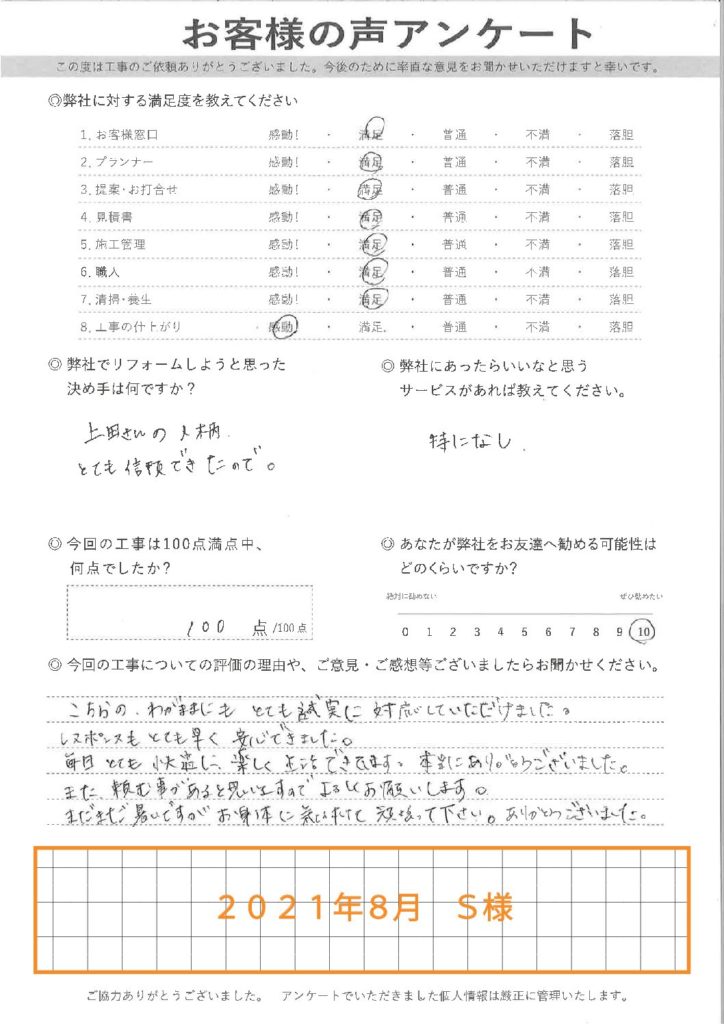 お客様の声アンケート
この度は工事のご依頼ありがとうございました。今後のために率直な意見をお聞かせいただけますと幸いです。
◎弊社に対する満足度を教えてください
1. お客様窓口 感動! ・ 満足 ・ 普通 ・ 不満 ・ 落胆
2. プランナー 感動! ・ 満足 ・ 普通 ・ 不満 ・ 落胆
3. 提案・お打合せ 感動! ・ 満足 ・ 普通 ・ 不満 ・ 落胆
4. 見積書 感動! ・ 満足 ・ 普通 ・ 不満 ・ 落胆
5. 施工管理 感動! ・ 満足 ・ 普通 ・ 不満 ・ 落胆
6. 職人 感動! ・ 満足 ・ 普通 ・ 不満 ・ 落胆
7. 清掃・養生 感動! ・ 満足 ・ 普通 ・ 不満 ・ 落胆
8. 工事の仕上がり 感動! ・ 満足 ・ 普通 ・ 不満 ・ 落胆
◎ 弊社でリフォームしようと思った
決め手は何ですか?
上田さんの人柄
とても信頼できたので。
◎ 弊社にあったらいいなと思う
サービスがあれば教えてください。
特になし
◎ 今回の工事は100点満点中、
何点でしたか?
100 点 /100点
◎ あなたが弊社をお友達へ勧める可能性は
どのくらいですか?
絶対に勧めない ぜひ勧めたい
0 1 2 3 4 5 6 7 8 9 10
◎ 今回の工事についての評価の理由や、ご意見・ご感想等ございましたらお聞かせください。
こちらの、わがままにも とても誠実に 対応していただけました。
レスポンスもとても早く 安心できました。
毎日 とても 快適に、楽しく 生活できてます。本当にありがとうございました。
また、頼む事があると思いますのでよろしくお願いします。
まだまだ暑いですが お身体に気を付けて 頑張って下さい。ありがとうございました。
2021年8月 S様
ご協力ありがとうございました。 アンケートでいただきました個人情報は厳正に管理いたします。